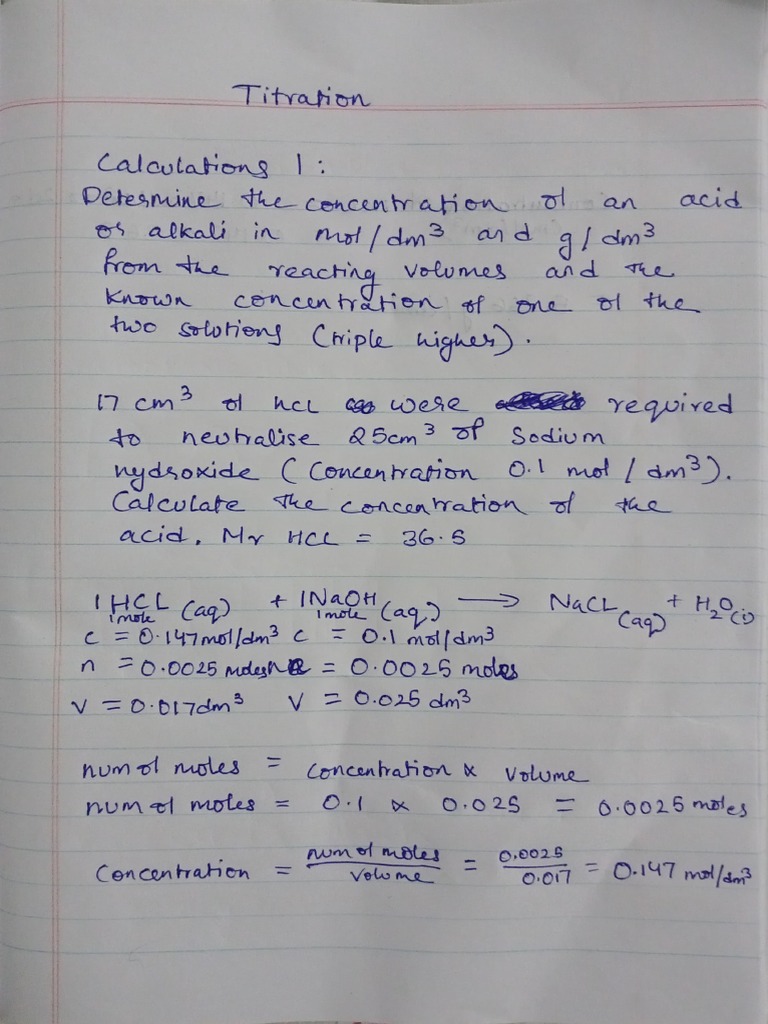 Titration
Calculations 1 :
Determine the concentration of an acid
or alkali in mol/dm³ and g/dm³
from the reacting volumes and the
known concentration of one of the
two solutions (triple higher).
17 cm³ of HCL were required
to neutralise 25cm³ of Sodium
hydroxide (Concentration 0.1 mol/dm³).
Calculate the concentration of the
acid. Mr HCL = 36.5
1 HCL (aq) + 1NaOH (aq) ⟶ NaCL (aq) + H₂O (l)
1mole 1mole
c = 0.147mol/dm³ c = 0.1 mol/dm³
n = 0.0025 moles n = 0.0025 moles
V = 0.017dm³ V = 0.025 dm³
num of moles = Concentration x volume
num of moles = 0.1 x 0.025 = 0.0025 moles
Concentration = num of moles / volume = 0.0025 / 0.017 = 0.147 mol/dm³